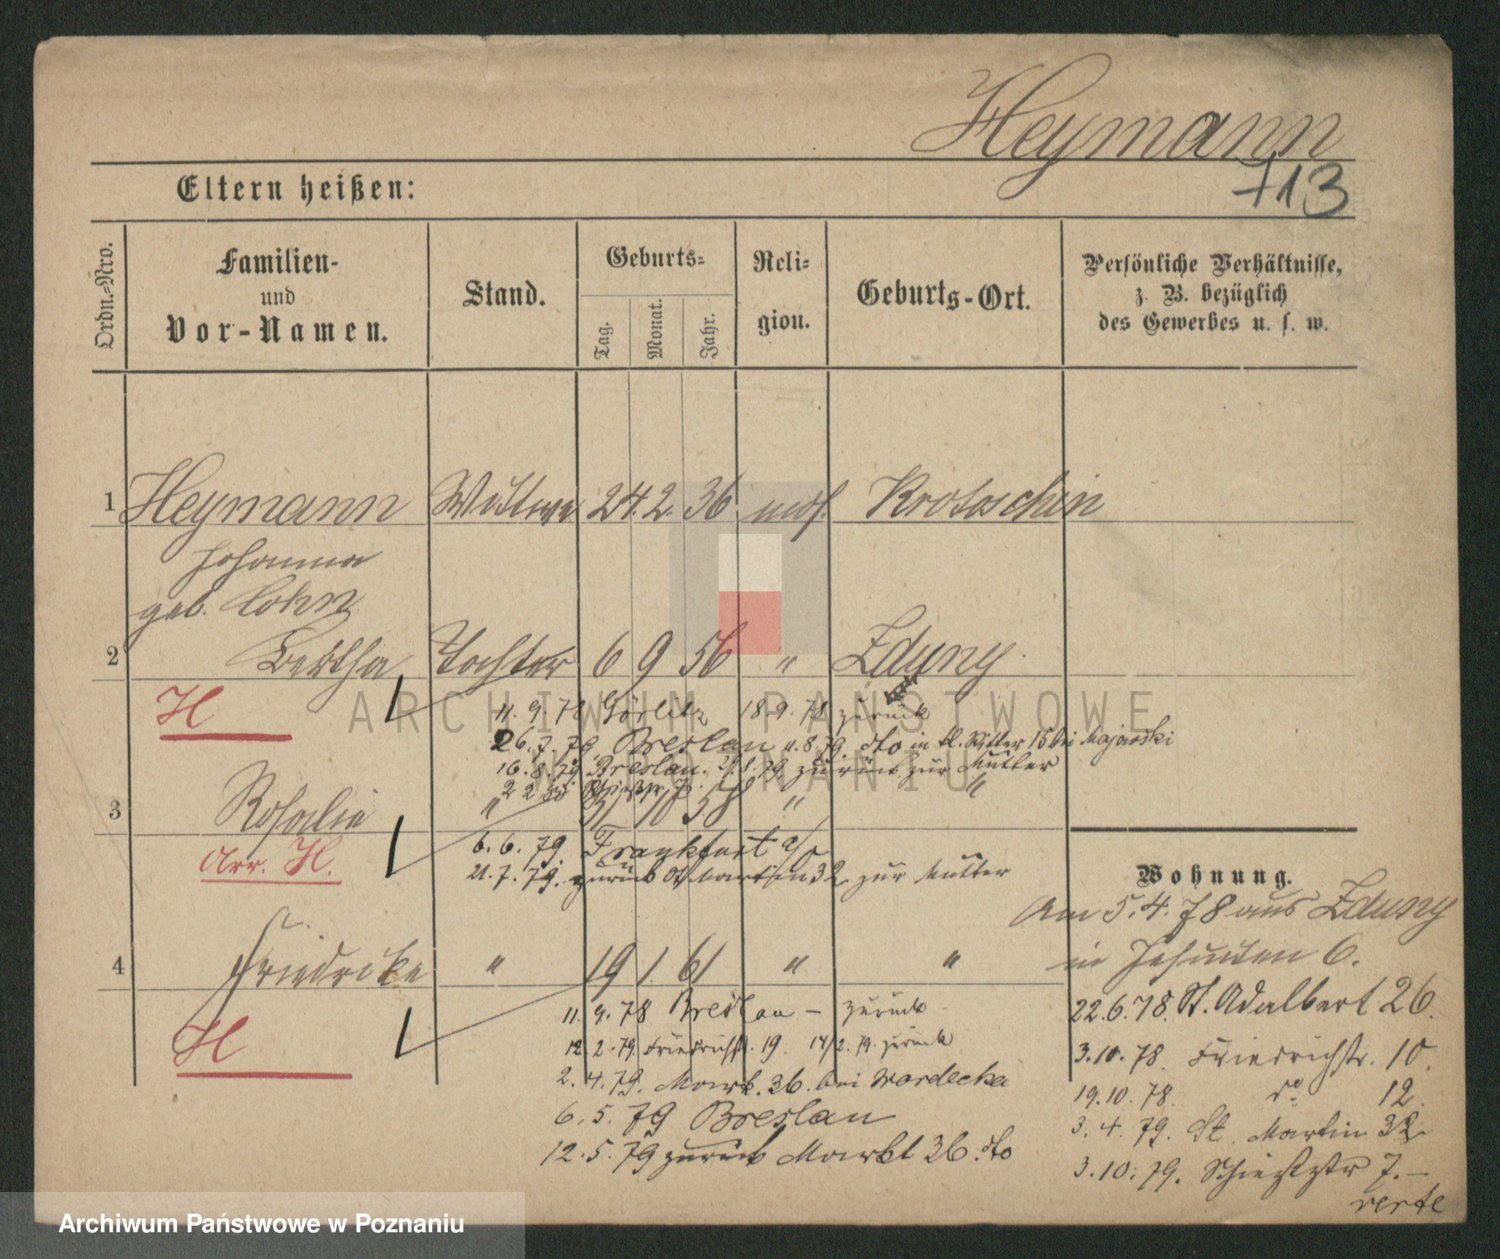 Heymann
713
Eltern heißen:
Ordn.-Nro.
Familien-
und
Vor-Namen.
Stand.
Geburts-
Tag.
Monat.
Jahr.
Reli-
gion.
Geburts-Ort.
Persönliche Verhältnisse,
z. B. bezüglich
des Gewerbes u. s. w.
1 Heymann Wittwe 24. 2. 36. mos. Krotoschin
Johanna
geb. Cohn
2 Bertha Tochter 6 9 56 " Zduny
H
11. 9. 78 Görlitz 18. 9. 78 zurück
26. 7. 79. Breslau 11. 8. 79. dto in kl. Ritter 15 bei Majewski
16. 8. 79. Breslau. zurück zur Mutter
3 Rosalie " 31 10 58 " "
Arr. H.
6. 6. 79 Frankfurt a/
21. 7. 79. zurück St Martin 32 zur Mutter
4 Friedricke " 19 1. 61 " "
H
11. 9. 78 Breslau - zurück
12 2. 79. Friedrichstr. 19. 14/2. 79. zurück
2. 4. 79. Markt. 36. bei Wardecka
6. 5. 79 Breslau
12. 5. 79 zurück Markt 36. dto
Wohnung.
Am 5. 4. 78 aus Zduny
in Jesuiten 6.
22. 6. 78. St. Adalbert 26.
3. 10. 78. Friedrichstr. 10.
19. 10. 78. do 12.
3. 4. 79. St. Martin 32.
3. 10. 79. Schießstr 7. -
verte
ARCHIWUM PAŃSTWOWE
W POZNANIU
Archiwum Państwowe w Poznaniu